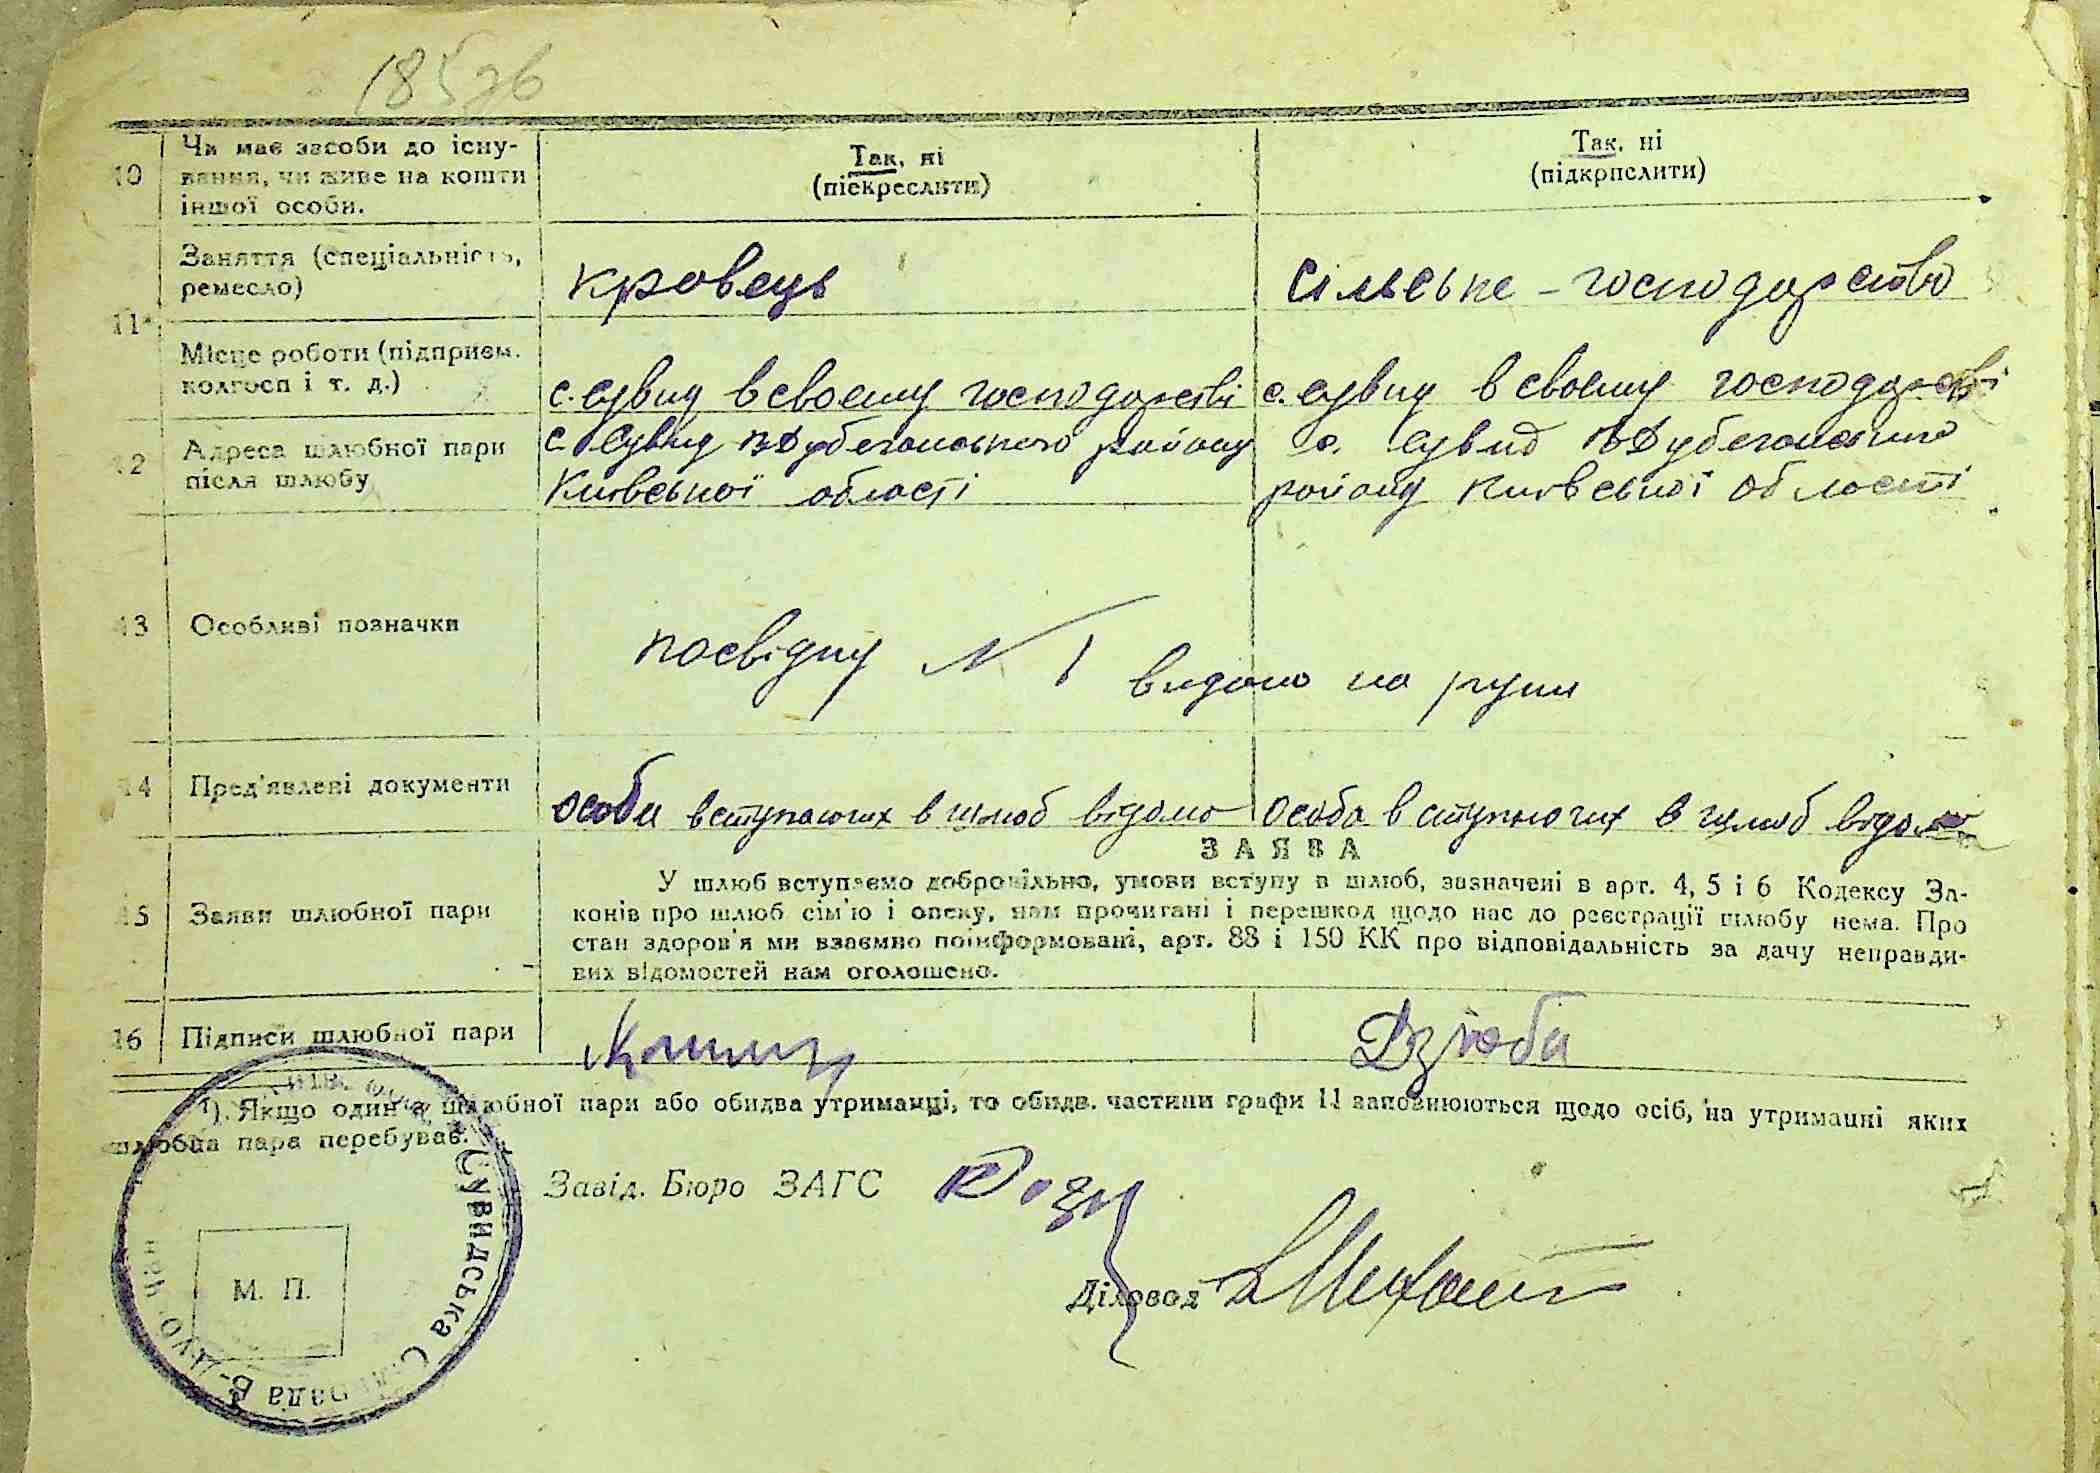 185 зв
10 Чи має засоби до існу-
вання, чи живе на кошти
іншої особи.
Так, ні
(піскреслити)
Так, ні
(підкрпслити)
11 Заняття (спеціальність,
ремесло)
кровець
сільське - господарство
Місце роботи (підприєм.
колгосп і т. д.)
с. Сувид в своєму господарстві
с. Сувид в своєму господарстві
12 Адреса шлюбної пари
після шлюбу
с Сувид ВДубечанського району
Київської області
с. Сувид ВДубечанського
району Київської області
13 Особливі позначки
посвідку № 1 видано на руки
14 Пред'явлені документи
особи вступаючих в шлюб відомо
особа вступаючих в шлюб відома
15 Заяви шлюбної пари
ЗАЯВА
У шлюб вступаємо добровільно, умови вступу в шлюб, зазначені в арт. 4, 5 і 6 Кодексу За-
конів про шлюб сім'ю і опеку, нам прочитані і перешкод щодо нас до реєстрації шлюбу нема. Про
стан здоров'я ми взаємно поінформовані, арт. 88 і 150 КК про відповідальність за дачу неправди-
вих відомостей нам оголошено.
16 Підписи шлюбної пари
Дзюба
¹). Якщо один з шлюбної пари або обидва утриманці, то обидв. частини графи 11 заповнюються щодо осіб, на утриманні яких
шлюбна пара перебуває.
Завід. Бюро ЗАГС
Діловод
М. П.
Сувидська
рада В-Дуб